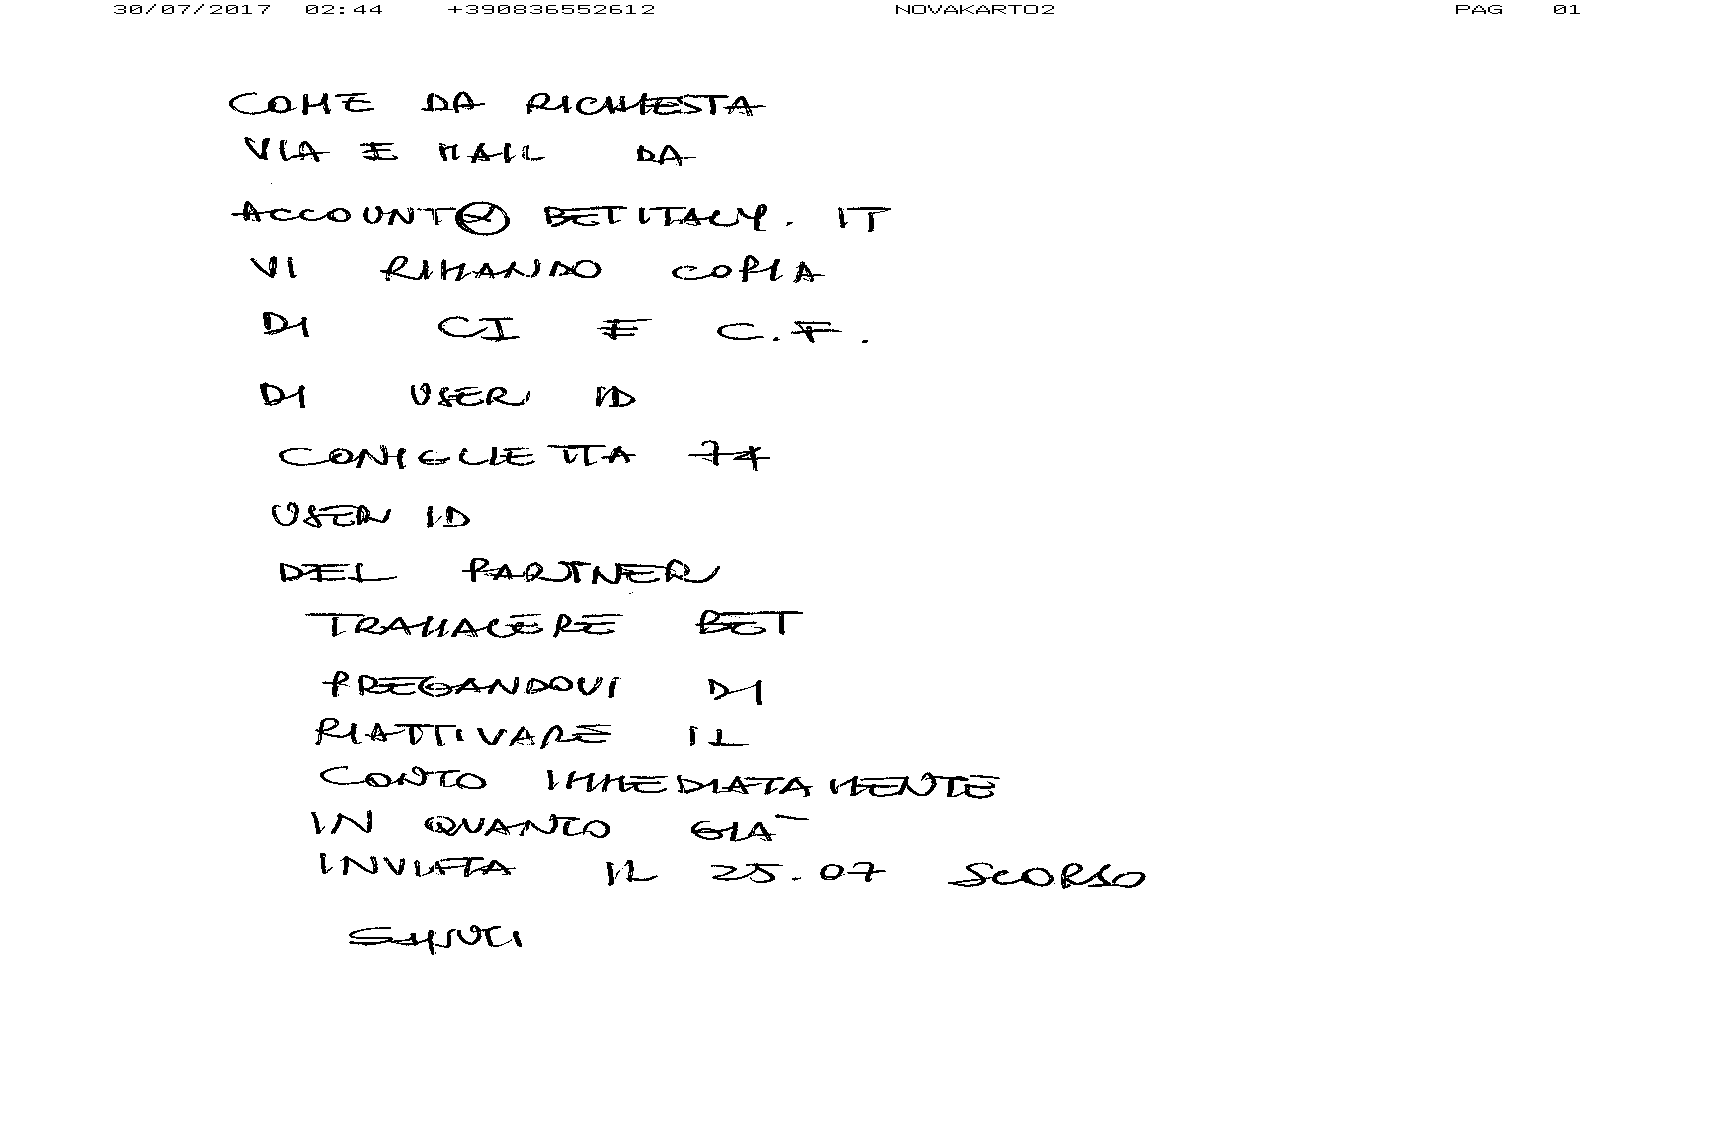 30/07/2017 02:44 +390836552612 NOVAKARTO2 PAG 01
COME DA RICHIESTA
VIA E MAIL DA
ACCOUNT@ BETITALY. IT
VI RIMANDO COPIA
DI CI E C.F.
DI USER ID
CONIGLIETTA 74
USER ID
DEL PARTNER
TRAMACERE BET
PREGANDOVI DI
RIATTIVARE IL
CONTO IMMEDIATAMENTE
IN QUANTO GIA'
INVIATA IL 25.07 SCORSO
SALUTI